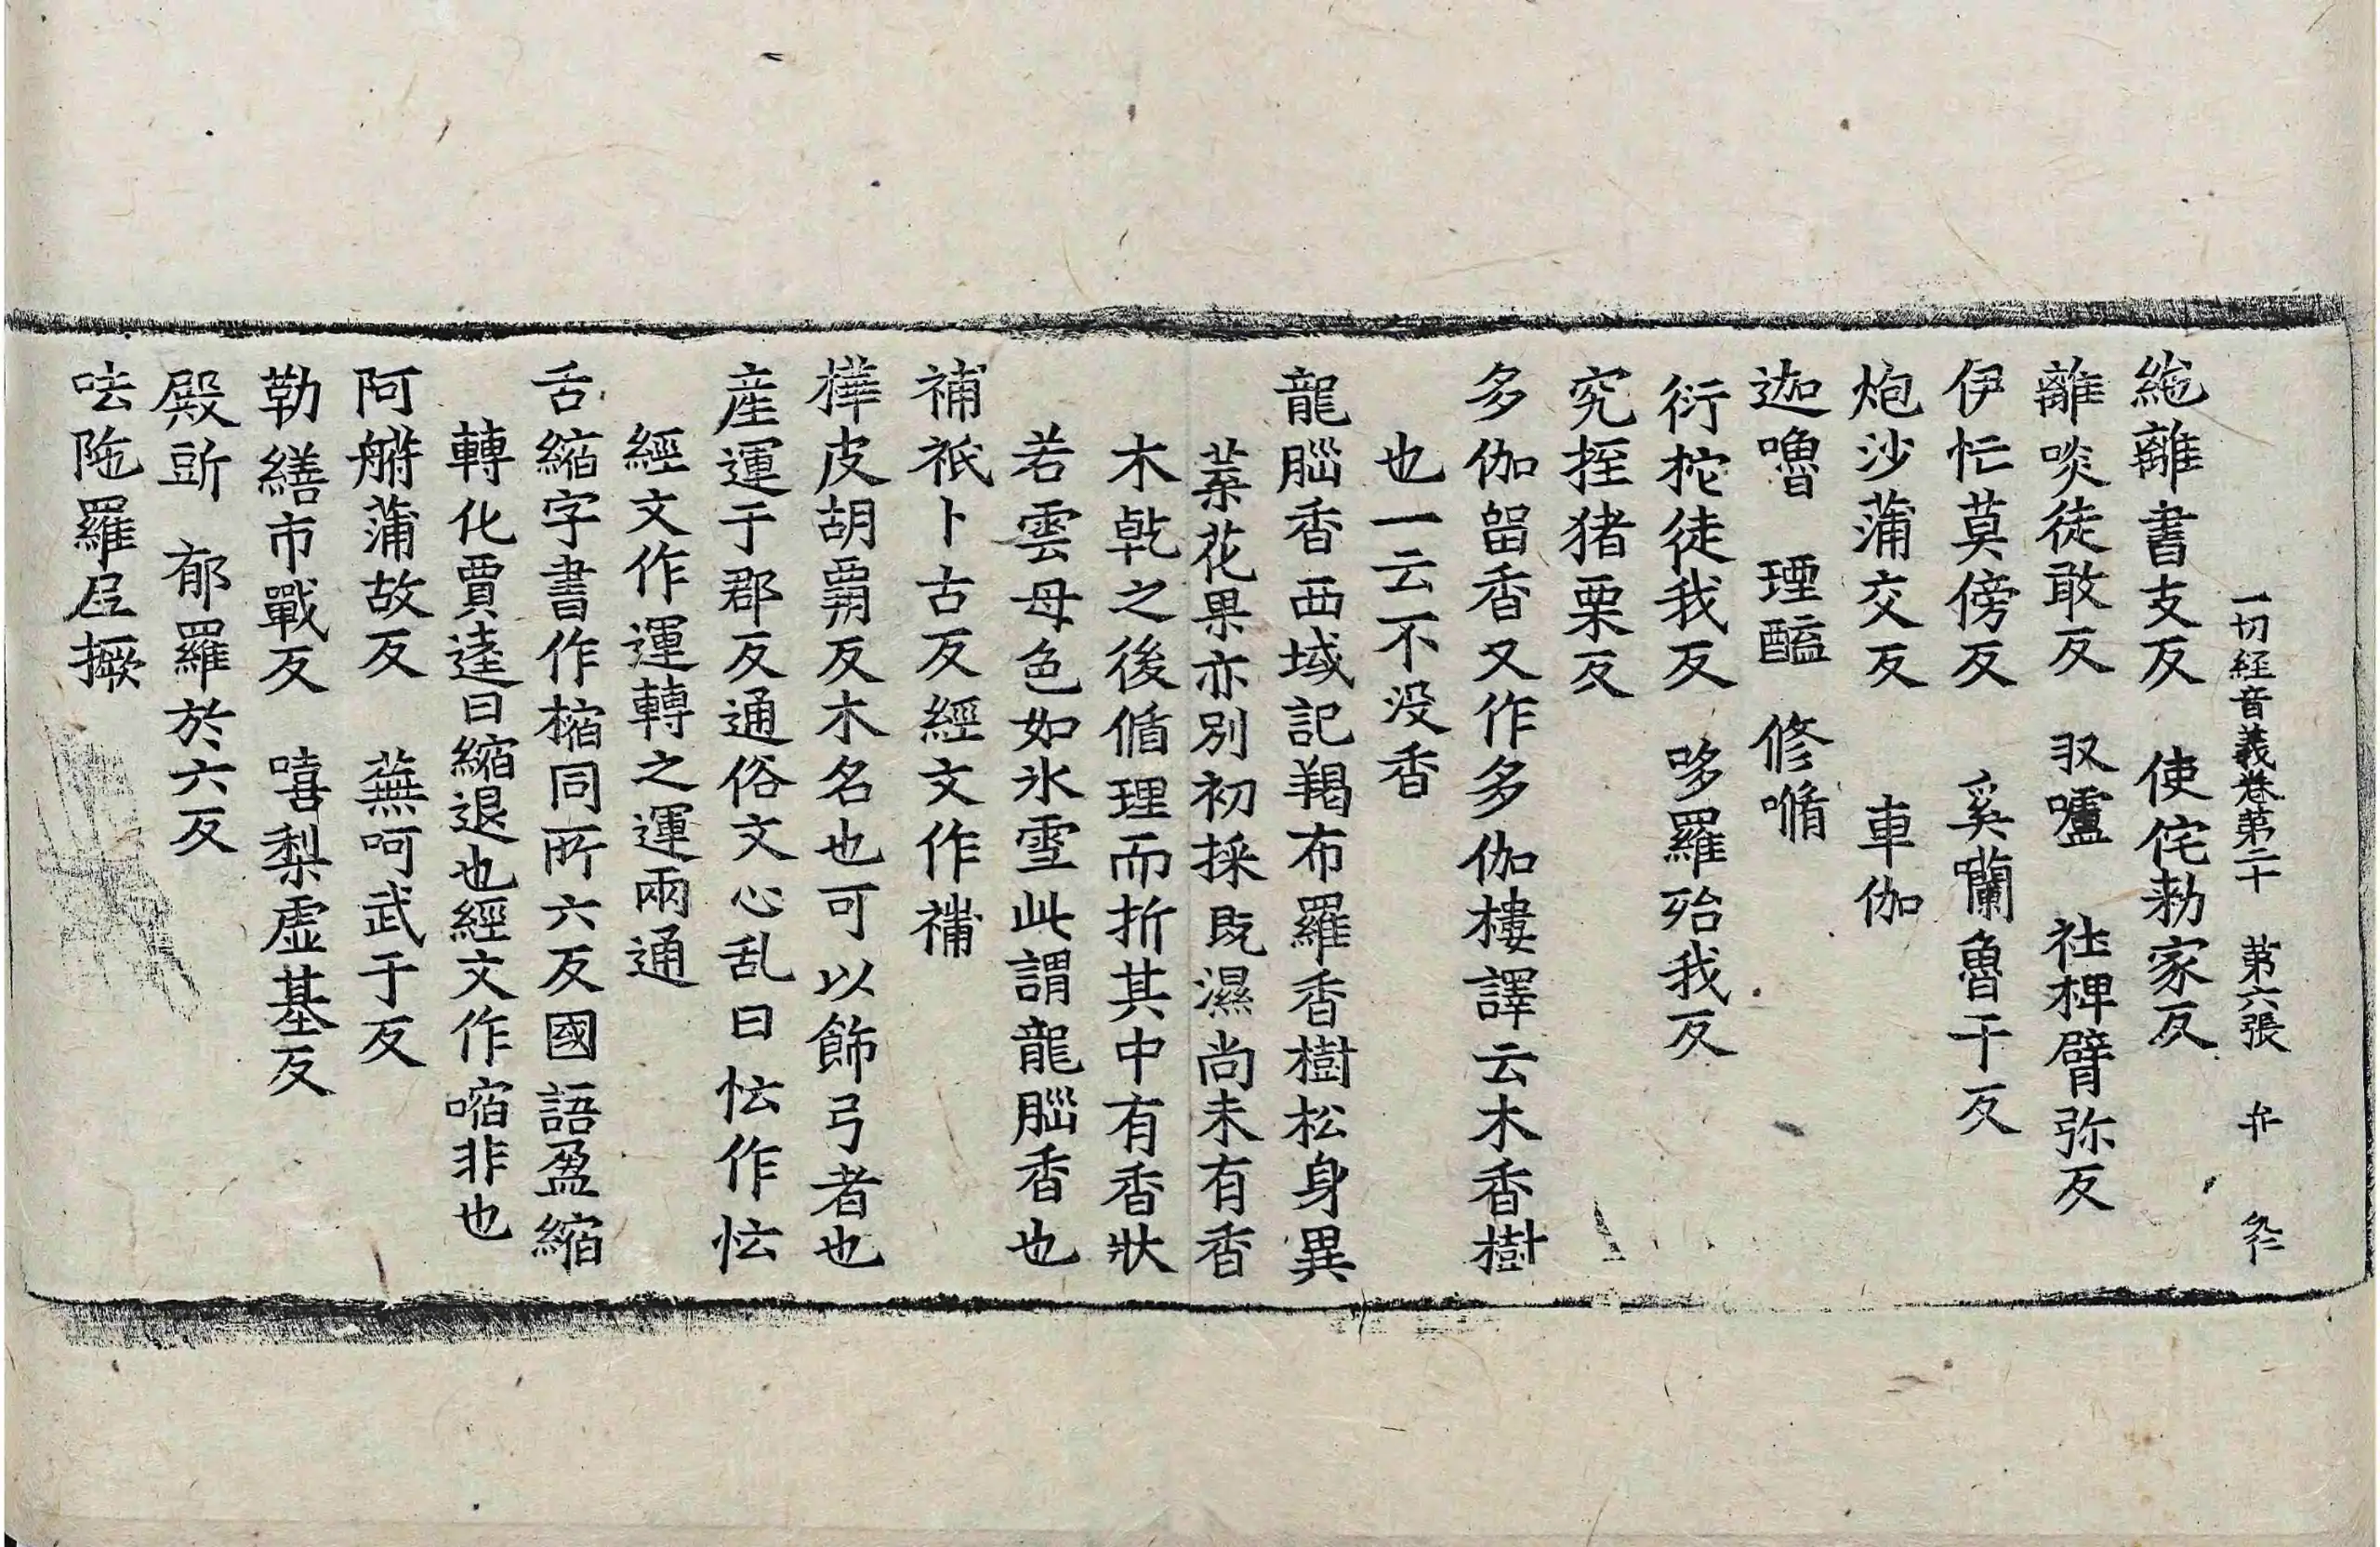 一切経音義卷第二十 第六張
絁離書支反 使侘勑家反
離啖徒敢反 㕛嚧 社椑臂弥反
伊恾莫傍反 奚蘭魯干反
炮沙蒲交反 車伽
迦嚕 理醯 修㗜
衍柁徒我反 哆羅殆我反
究挃猪栗反
多伽留香又作多伽樓譯云木香樹
也一云不没香
龍腦香西域記羯布羅香樹松身異
葉花果亦別初採既濕尚未有香
木乾之後循理而折其中有香狀
若雲母色如氷雪此謂龍腦香也
補祇卜古反經文作𥙷
樺皮胡霸反木名也可以飾弓者也
産運于郡反通俗文心乱曰忶作忶
經文作運轉之運兩通
舌縮字書作樎同所六反國語盈縮
轉化賈逵曰縮退也經文作㗜非也
阿䑰蒲故反 蕪呵武于反
勒繕市戰反 嘻梨虛基反
殿䚷 郁羅於六反
呿陁羅㞐撅